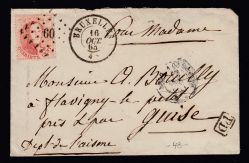 60
BRUXELLES
16
OCT
65
Pour Madame
Monsieur D. Bouilly
à Flavigny le petit
près et par Guise
Dept de l'aisne
PD